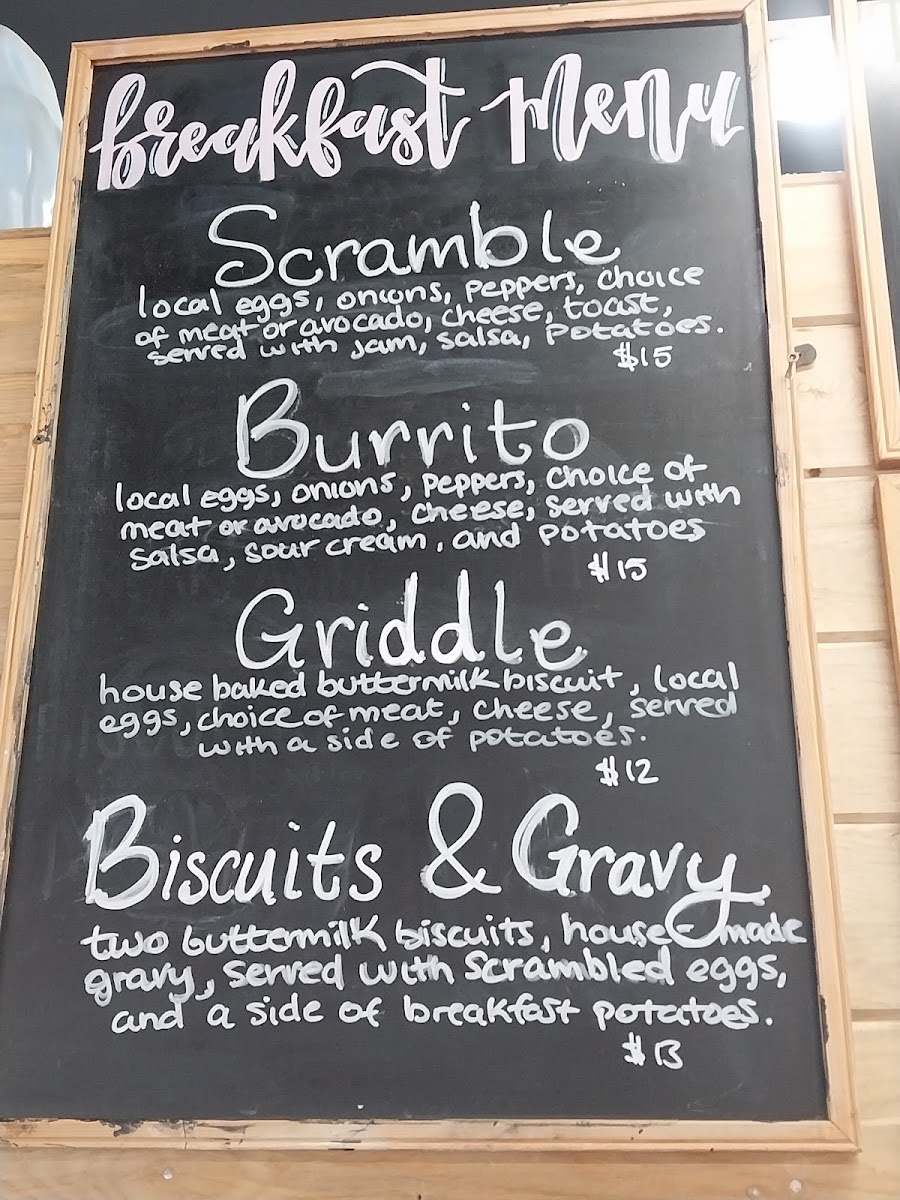 breakfast Menu
Scramble
local eggs, onions, peppers, choice
of meat or avocado, cheese, toast,
served with jam, salsa, potatoes.
$15
Burrito
local eggs, onions, peppers, choice of
meat or avocado, cheese, served with
salsa, sour cream, and potatoes
$15
Griddle
house baked buttermilk biscuit, local
eggs, choice of meat, cheese, served
with a side of potatoes.
$12
Biscuits & Gravy
two buttermilk biscuits, house-made
gravy, served with scrambled eggs,
and a side of breakfast potatoes.
$13